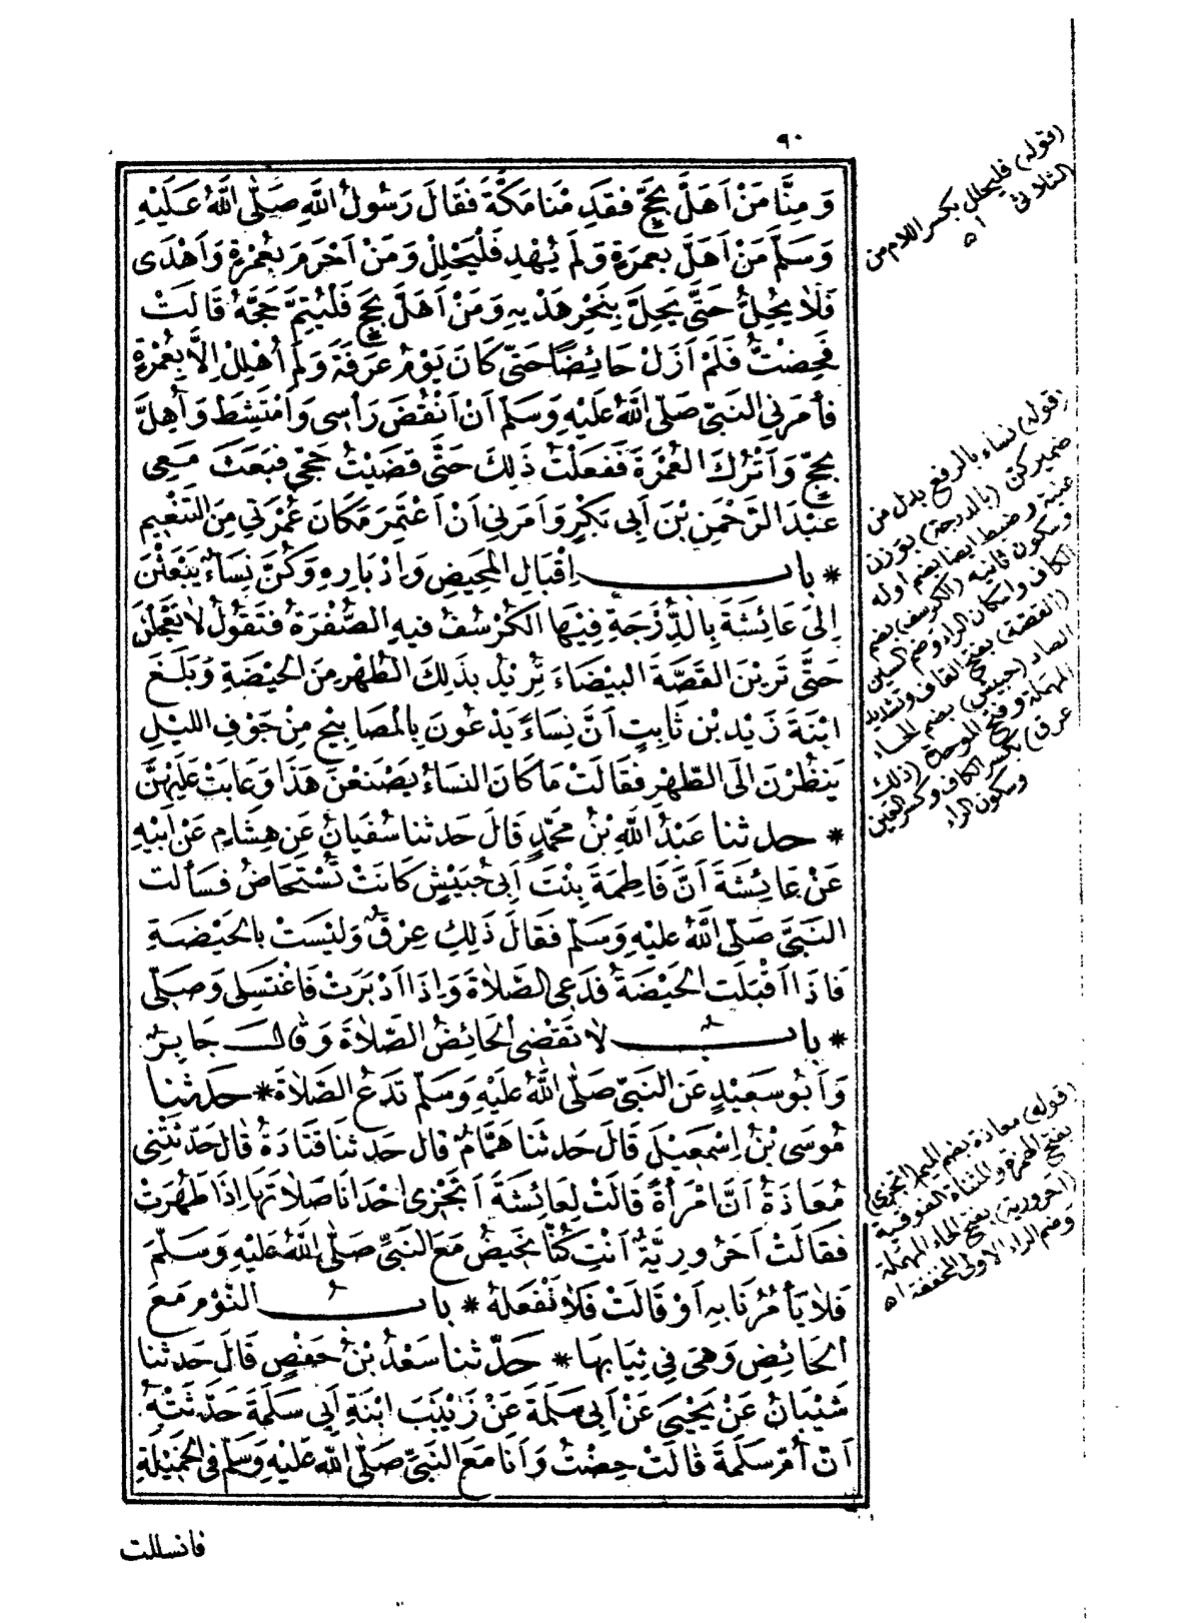 ٩٠
وَمِنَّا مَنْ اَهَلَّ بِحَجٍّ فَقَدِمْنَا مَكَّةَ فَقَالَ رَسُولُ اللَّهِ صَلَّى اللَّهُ عَلَيْهِ
وَسَلَّمَ مَنْ اَهَلَّ بِعُمْرَةٍ وَلَمْ يُهْدِ فَلْيَحْلِلْ وَمَنْ اَحْرَمَ بِعُمْرَةٍ وَاَهْدَى
فَلَا يُحِلُّ حَتَّى يَحِلَّ بِنَحْرِ هَدْيِهِ وَمَنْ اَهَلَّ بِحَجٍّ فَلْيُتِمَّ حَجَّهُ قَالَتْ
فَحِضْتُ فَلَمْ اَزَلْ حَائِضًا حَتَّى كَانَ يَوْمُ عَرَفَةَ وَلَمْ اُهْلِلْ اِلَّا بِعُمْرَةٍ
فَأَمَرَنِي النَّبِيُّ صَلَّى اللَّهُ عَلَيْهِ وَسَلَّمَ اَنْ اَنْقُضَ رَأْسِي وَاَمْتَشِطَ وَاُهِلَّ
بِحَجٍّ وَاَتْرُكَ الْعُمْرَةَ فَفَعَلْتُ ذٰلِكَ حَتَّى قَضَيْتُ حَجِّي فَبَعَثَ مَعِي
عَبْدَ الرَّحْمٰنِ بْنَ اَبِي بَكْرٍ وَاَمَرَنِي اَنْ اَعْتَمِرَ مَكَانَ عُمْرَتِي مِنَ التَّنْعِيمِ
* باب اِقْبَالِ الْمَحِيضِ وَاِدْبَارِهِ وَكُنَّ نِسَاءٌ يَبْعَثْنَ
اِلَى عَائِشَةَ بِالدُّرْجَةِ فِيهَا الْكُرْسُفُ فِيهِ الصُّفْرَةُ فَتَقُولُ لَا تَعْجَلْنَ
حَتَّى تَرَيْنَ الْقَصَّةَ الْبَيْضَاءَ تُرِيْدُ بِذَلِكَ الطُّهْرَ مِنَ الْحَيْضَةِ وَبَلَغَ
ابْنَةَ زَيْدِ بْنِ ثَابِتٍ اَنَّ نِسَاءً يَدْعُونَ بِالْمَصَابِيْحِ مِنْ جَوْفِ اللَّيْلِ
يَنْظُرْنَ اِلَى الطُّهْرِ فَقَالَتْ مَا كَانَ النِّسَاءُ يَصْنَعْنَ هَذَا وَعَابَتْ عَلَيْهِنَّ
* حدثنا عَبْدُ اللَّهِ بْنُ مُحَمَّدٍ قَالَ حَدثنا سُفْيَانُ عَنْ هِشَامٍ عَنْ اَبِيْهِ
عَنْ عَائِشَةَ اَنَّ فَاطِمَةَ بِنْتَ اَبِي حُبَيْشٍ كَانَتْ تُسْتَحَاضُ فَسَأَلَتِ
النَّبِيَّ صَلَّى اللَّهُ عَلَيْهِ وَسَلَّمَ فَقَالَ ذَلِكِ عِرْقٌ وَلَيْسَتْ بِالْحَيْضَةِ
فَاِذَا اَقْبَلَتِ الْحَيْضَةُ فَدَعِي الصَّلَاةَ وَاِذَا اَدْبَرَتْ فَاغْتَسِلِي وَصَلِّي
* بابٌ لَا تَقْضِي الْحَائِضُ الصَّلَاةَ وَقَالَ جَابِرٌ
وَاَبُو سَعِيْدٍ عَنِ النَّبِيِّ صَلَّى اللَّهُ عَلَيْهِ وَسَلَّمَ تَدَعُ الصَّلَاةَ * حَدثنا
مُوسَى بْنُ اِسْمٰعِيْلَ قَالَ حَدثنا هَمَّامٌ قَالَ حَدثنا قَتَادَةُ قَالَ حَدَّثَتْنِي
مُعَاذَةُ اَنَّ امْرَأَةً قَالَتْ لِعَائِشَةَ اَتَجْزِي اِحْدَانَا صَلَاتَهَا اِذَا طَهُرَتْ
فَقَالَتْ اَحَرُورِيَّةٌ اَنْتِ كُنَّا نَحِيضُ مَعَ النَّبِيِّ صَلَّى اللَّهُ عَلَيْهِ وَسَلَّمَ
فَلَا يَأْمُرُنَا بِهِ اَوْ قَالَتْ فَلَا نَفْعَلُهُ * بابُ النَّوْمِ مَعَ
الْحَائِضِ وَهِيَ فِي ثِيَابِهَا * حَدَّثنا سَعْدُ بْنُ حَفْصٍ قَالَ حَدثنا
شَيْبَانُ عَنْ يَحْيَى عَنْ اَبِي سَلَمَةَ عَنْ زَيْنَبَ ابْنَةِ اَبِي سَلَمَةَ حَدَّثَتْهُ
اَنَّ اُمَّ سَلَمَةَ قَالَتْ حِضْتُ وَاَنَا مَعَ النَّبِيِّ صَلَّى اللَّهُ عَلَيْهِ وَسَلَّمَ فِي الْخَمِيْلَةِ
فانسللت
(قوله) فليحلل بكسر اللام من
الثلاثى اه
(قوله) نساء بالرفع بدل من
ضمير كنّ (بالدرجة) بوزن
عنبة وضبط ايضا بضم اوله
وسكون ثانيه (الكرسف) بضم
الكاف واسكان الراء وضم السين
(القصة) بفتح القاف وتشديد
الصاد (حبيش) بضم الحاء
المهملة وفتح الموحدة (ذلك
عرق) بكسر الكاف وكسر العين
وسكون الراء
(قوله) معاذة بضم الميم (اتجزى)
بفتح الهمزة والمثناة الفوقية
(احرورية) بفتح الحاء المهملة
وضم الراء الاولى المخففة اه